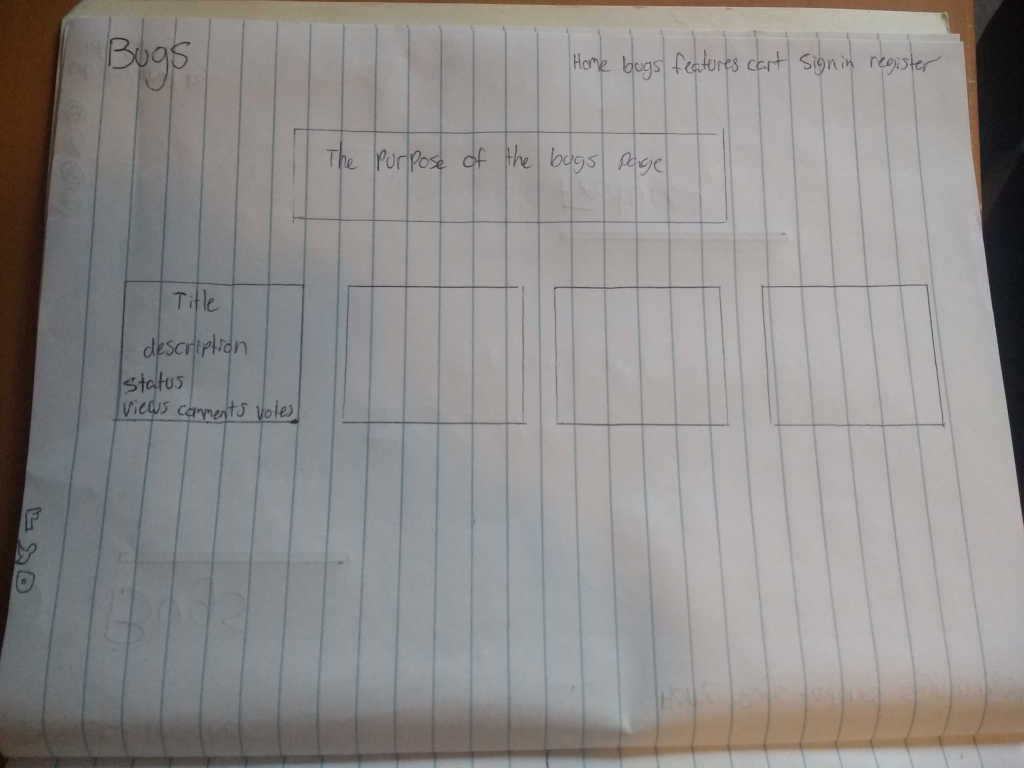 Bugs
Home bugs features cart Signin register
The purpose of the bugs page
Title
description
status
views comments votes
F